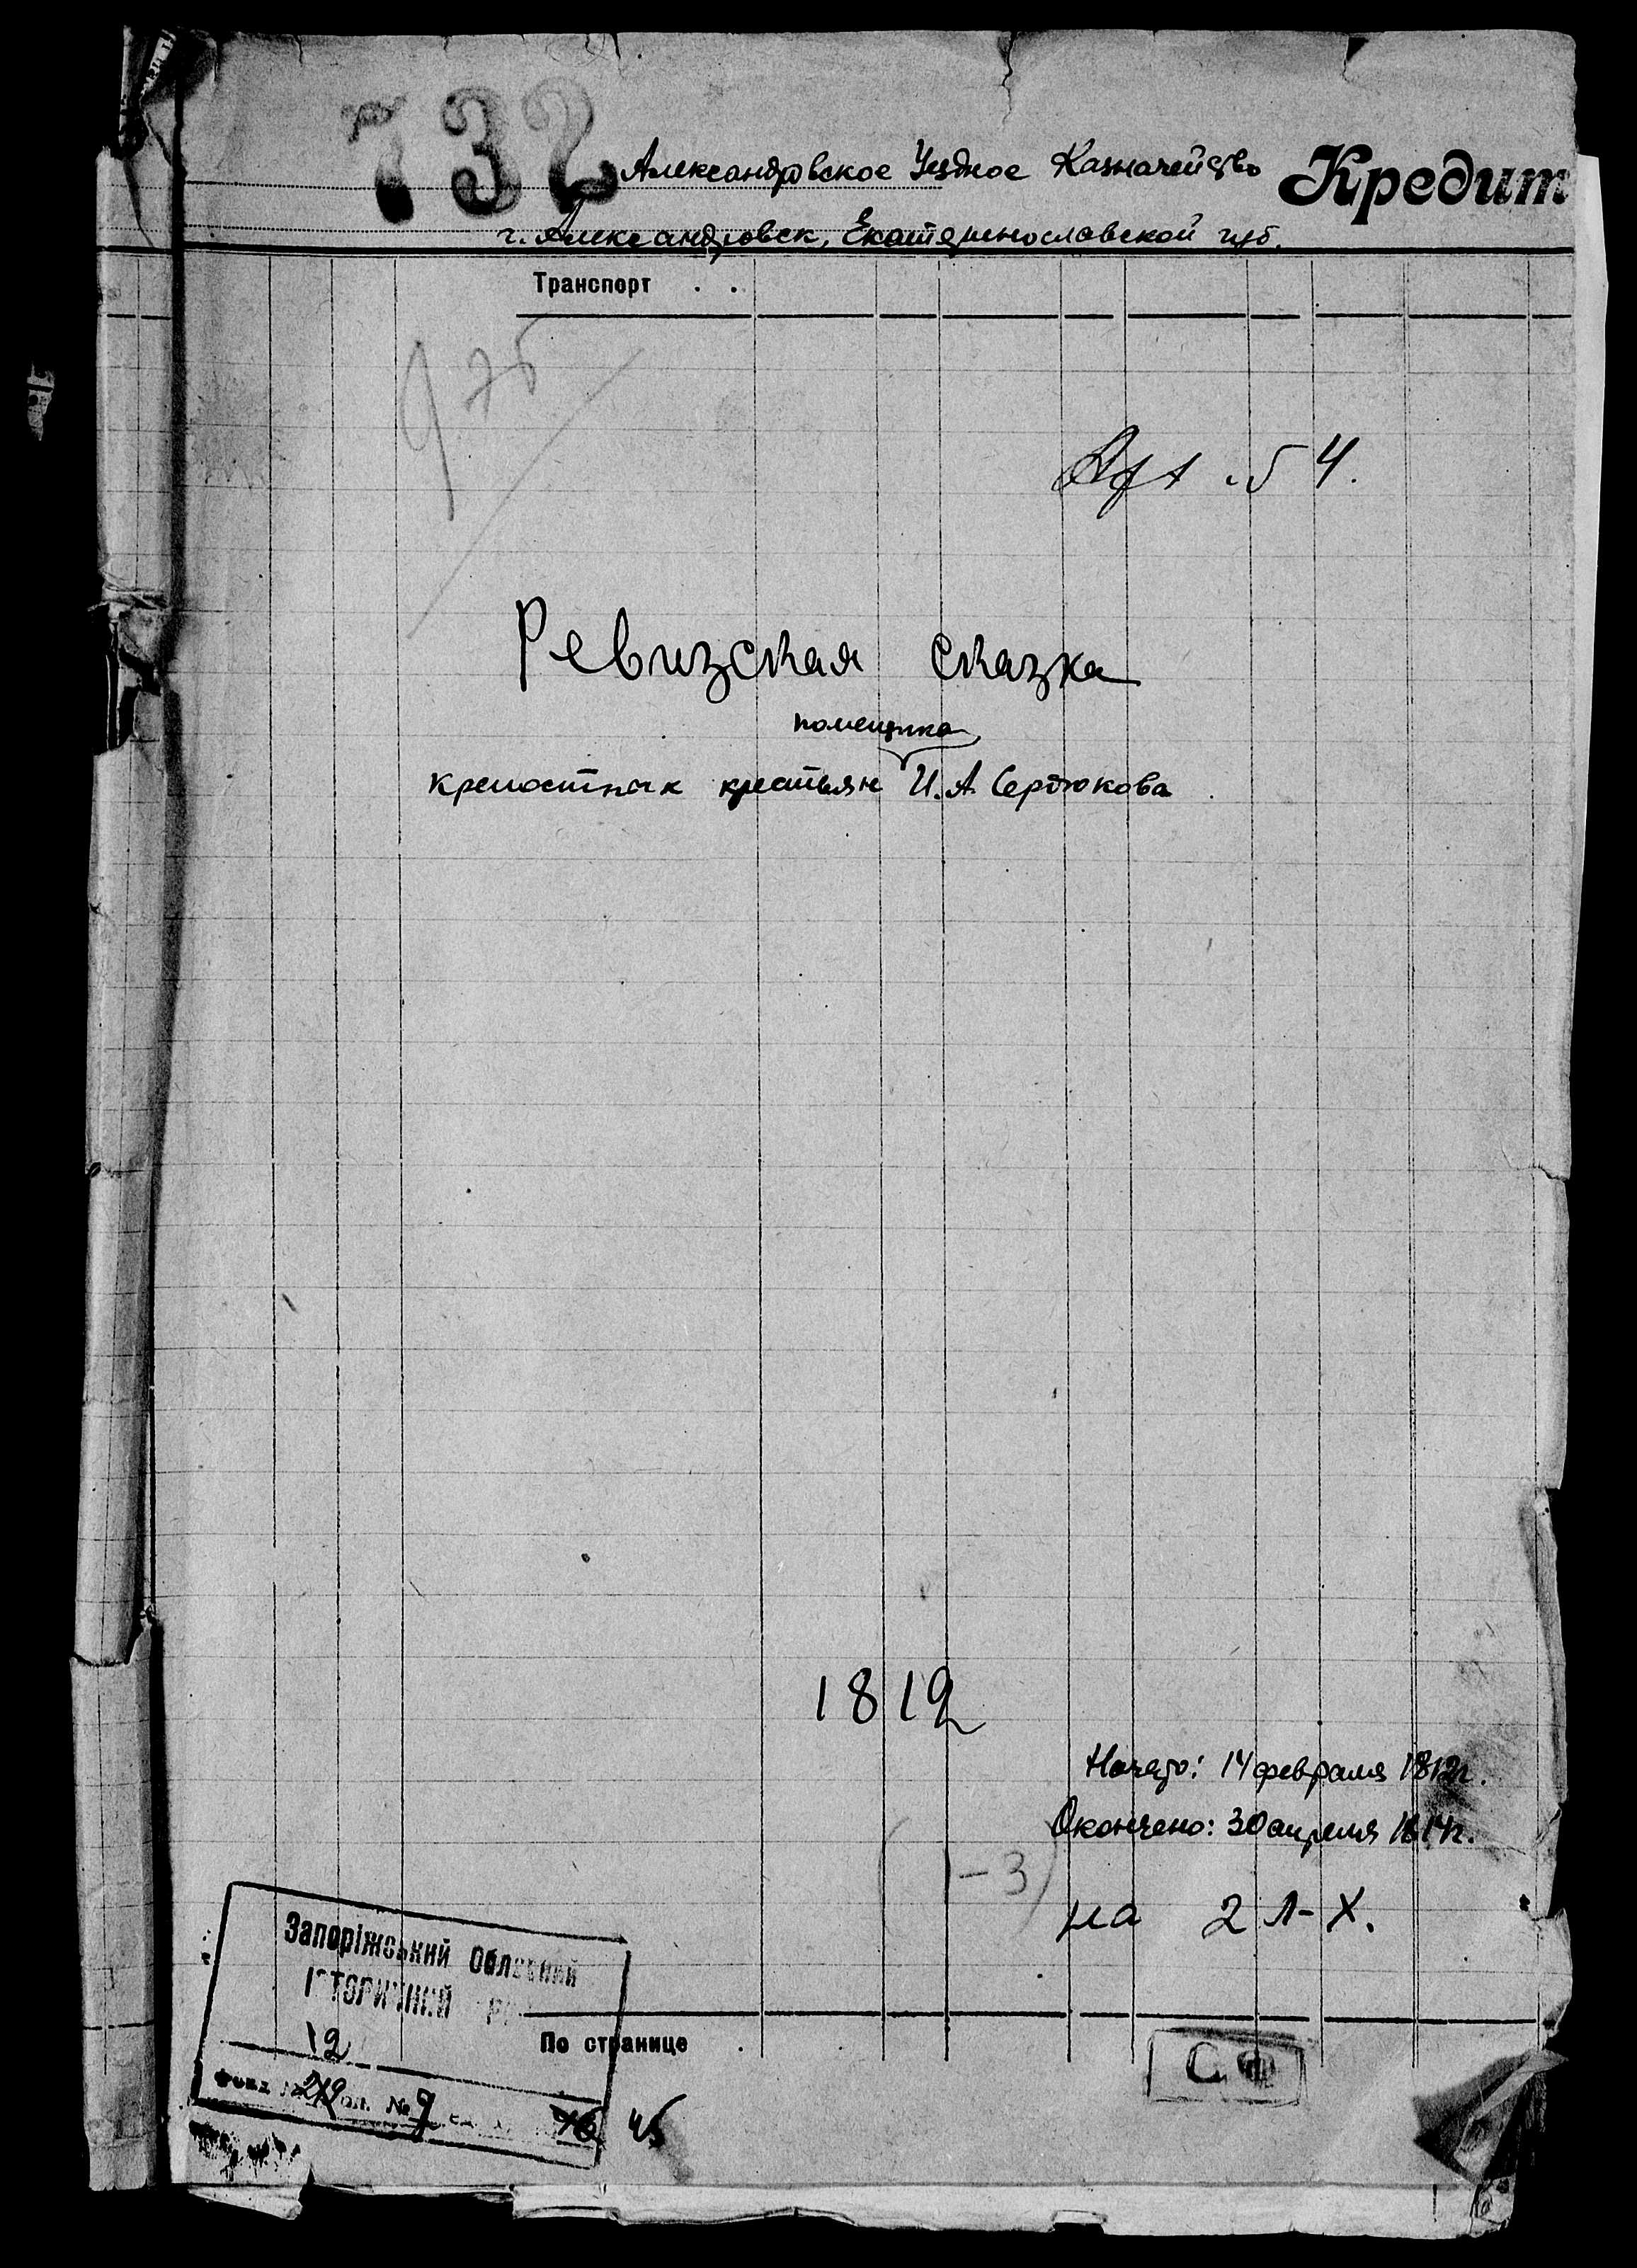 732
Александровское Уездное Казначейство
Кредит
г. Александровск, Екатеринославской губ.
Транспорт . .
975
54.
Ревизская сказка
помещика
крепостных крестьян И. А. Сердюкова
1812
Начато: 14 февраля 1812г.
Окончено: 30 апреля 1814г.
(1-3)
на 2 л-х.
Запорізький Обласний
Історичний
12
По странице .
С.Ф
Фонд № оп. № 9
45